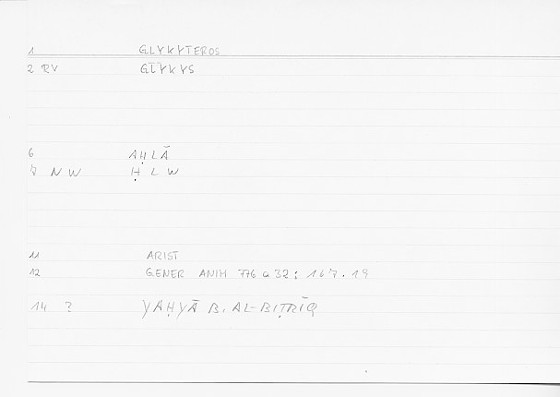 1 GLYKYTEROS
2 RV GLYKYS
6 AḤLĀ
8 NW ḤLW
11 ARIST
12 GENER ANIM 776 a 32 : 167.19
14 ? YAḤYĀ B. AL-BIṬRĪQ